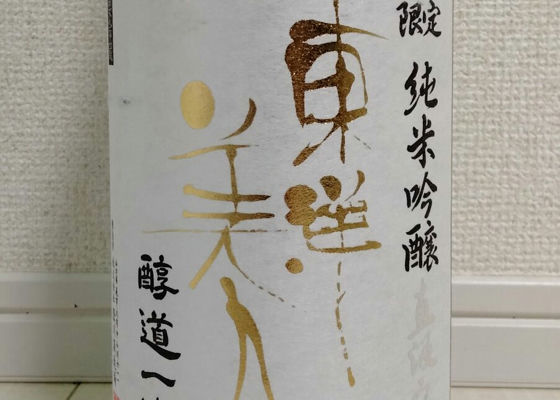 限定 純米吟醸
東洋
美人
醇道一